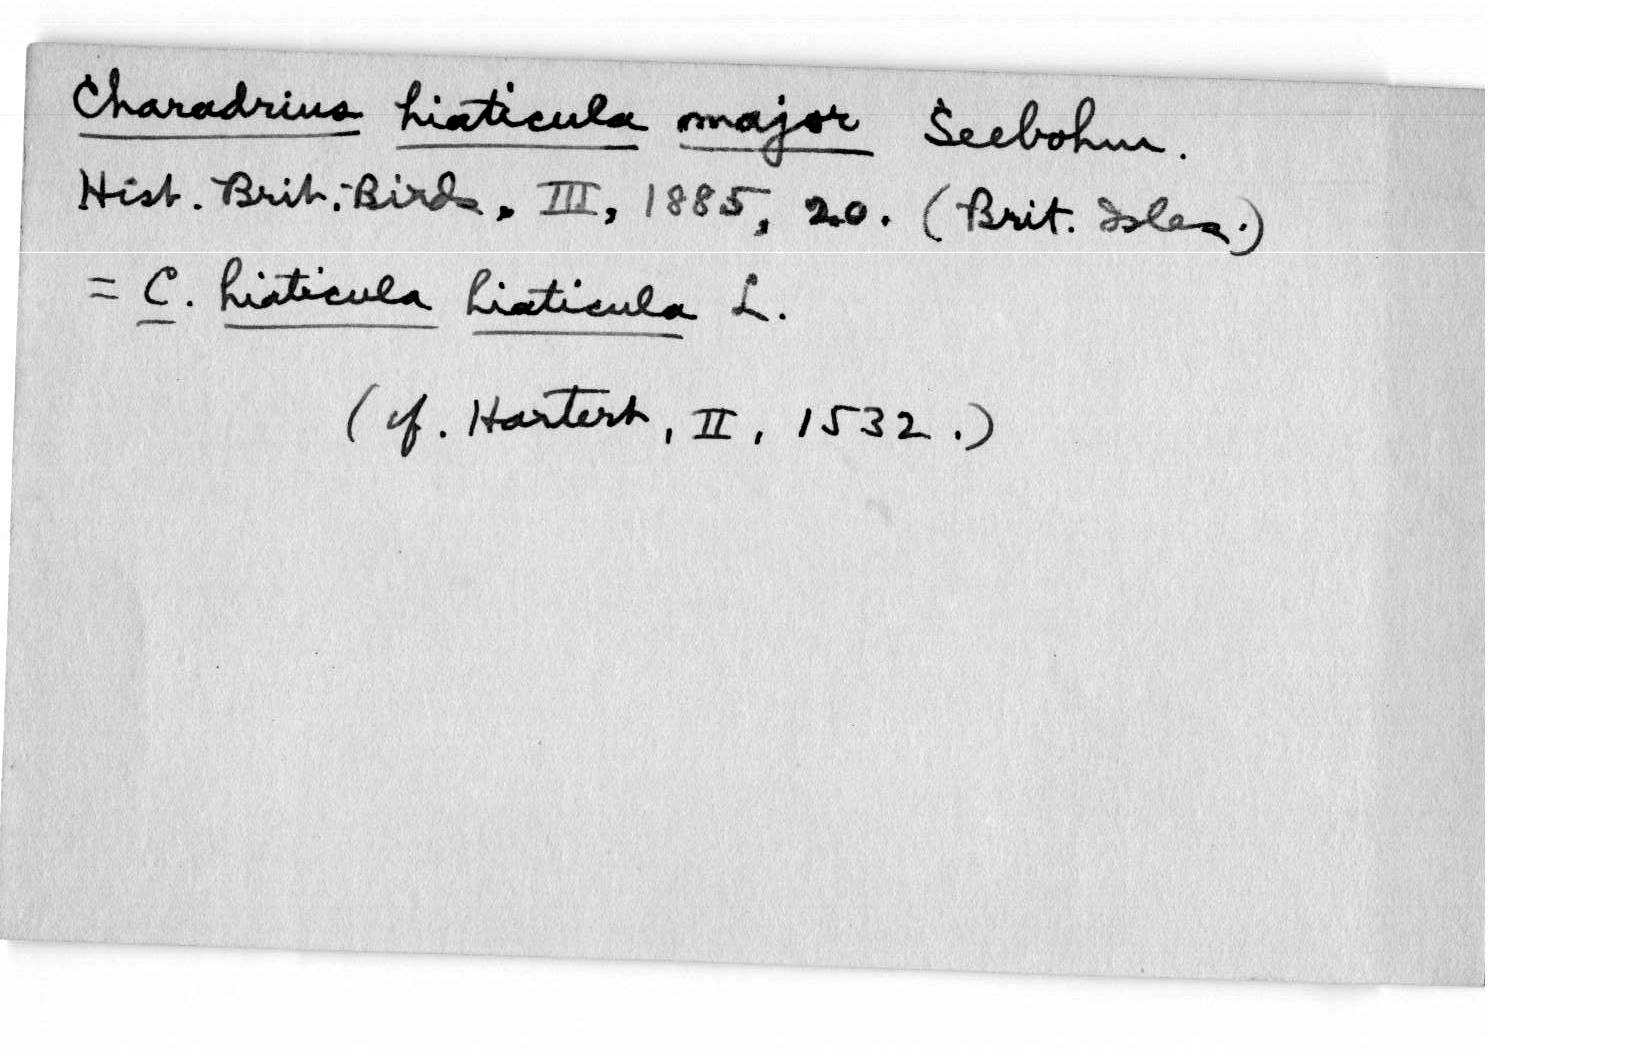 Charadrius hiaticula major Seebohm.
Hist. Brit. Birds, III, 1885, 20. (Brit. Isles.)
= C. hiaticula hiaticula L.
(cf. Hartert, II, 1532.)